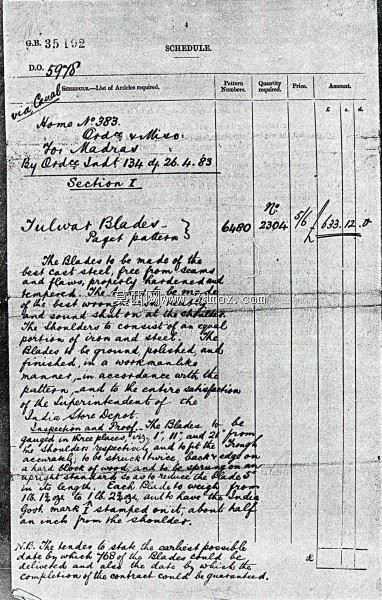 4
G.B. 35192
SCHEDULE.
D.O. 5978
via Canal
SCHEDULE.—List of Articles required.
Pattern Numbers.
Quantity required.
Price.
Amount.
£ s. d.
Home No 383.
Ordce & Misc:
For Madras
By Ordce Indt 134 of 26.4.83
Section I
Tulwar Blades
Paget pattern
6480
No 2304
5/6
633.12.0
The Blades to be made of the
best cast steel, free from seams
and flaws, properly hardened and
tempered. The
of the best
and sound shut on at the shoulder.
The shoulders to consist of an equal
portion of iron and steel. The
Blades to be ground, polished, and
finished, in a workmanlike
manner, in accordance with the
pattern, and to the entire satisfaction
of the Superintendent of the
India Store Depot.
Inspection and Proof. The Blades to be
gauged in three places, viz, 1", 11", and 21" from
the shoulder respectively and to fit the Trough
accurately, to be struck twice, back & edge on
a hard block of wood, and to be sprung on an
upright standard so as to reduce the blade 5"
in its length. Each Blade to weigh from
1 lb. 1½ oz to 1 lb. 2½ oz and to have the India
Govt mark I stamped on it, about half
an inch from the shoulder.
N.B. The tender to state the earliest possible
date by which 768 of the Blades could be
delivered and also the date by which the
completion of the contract could be guaranteed.
£